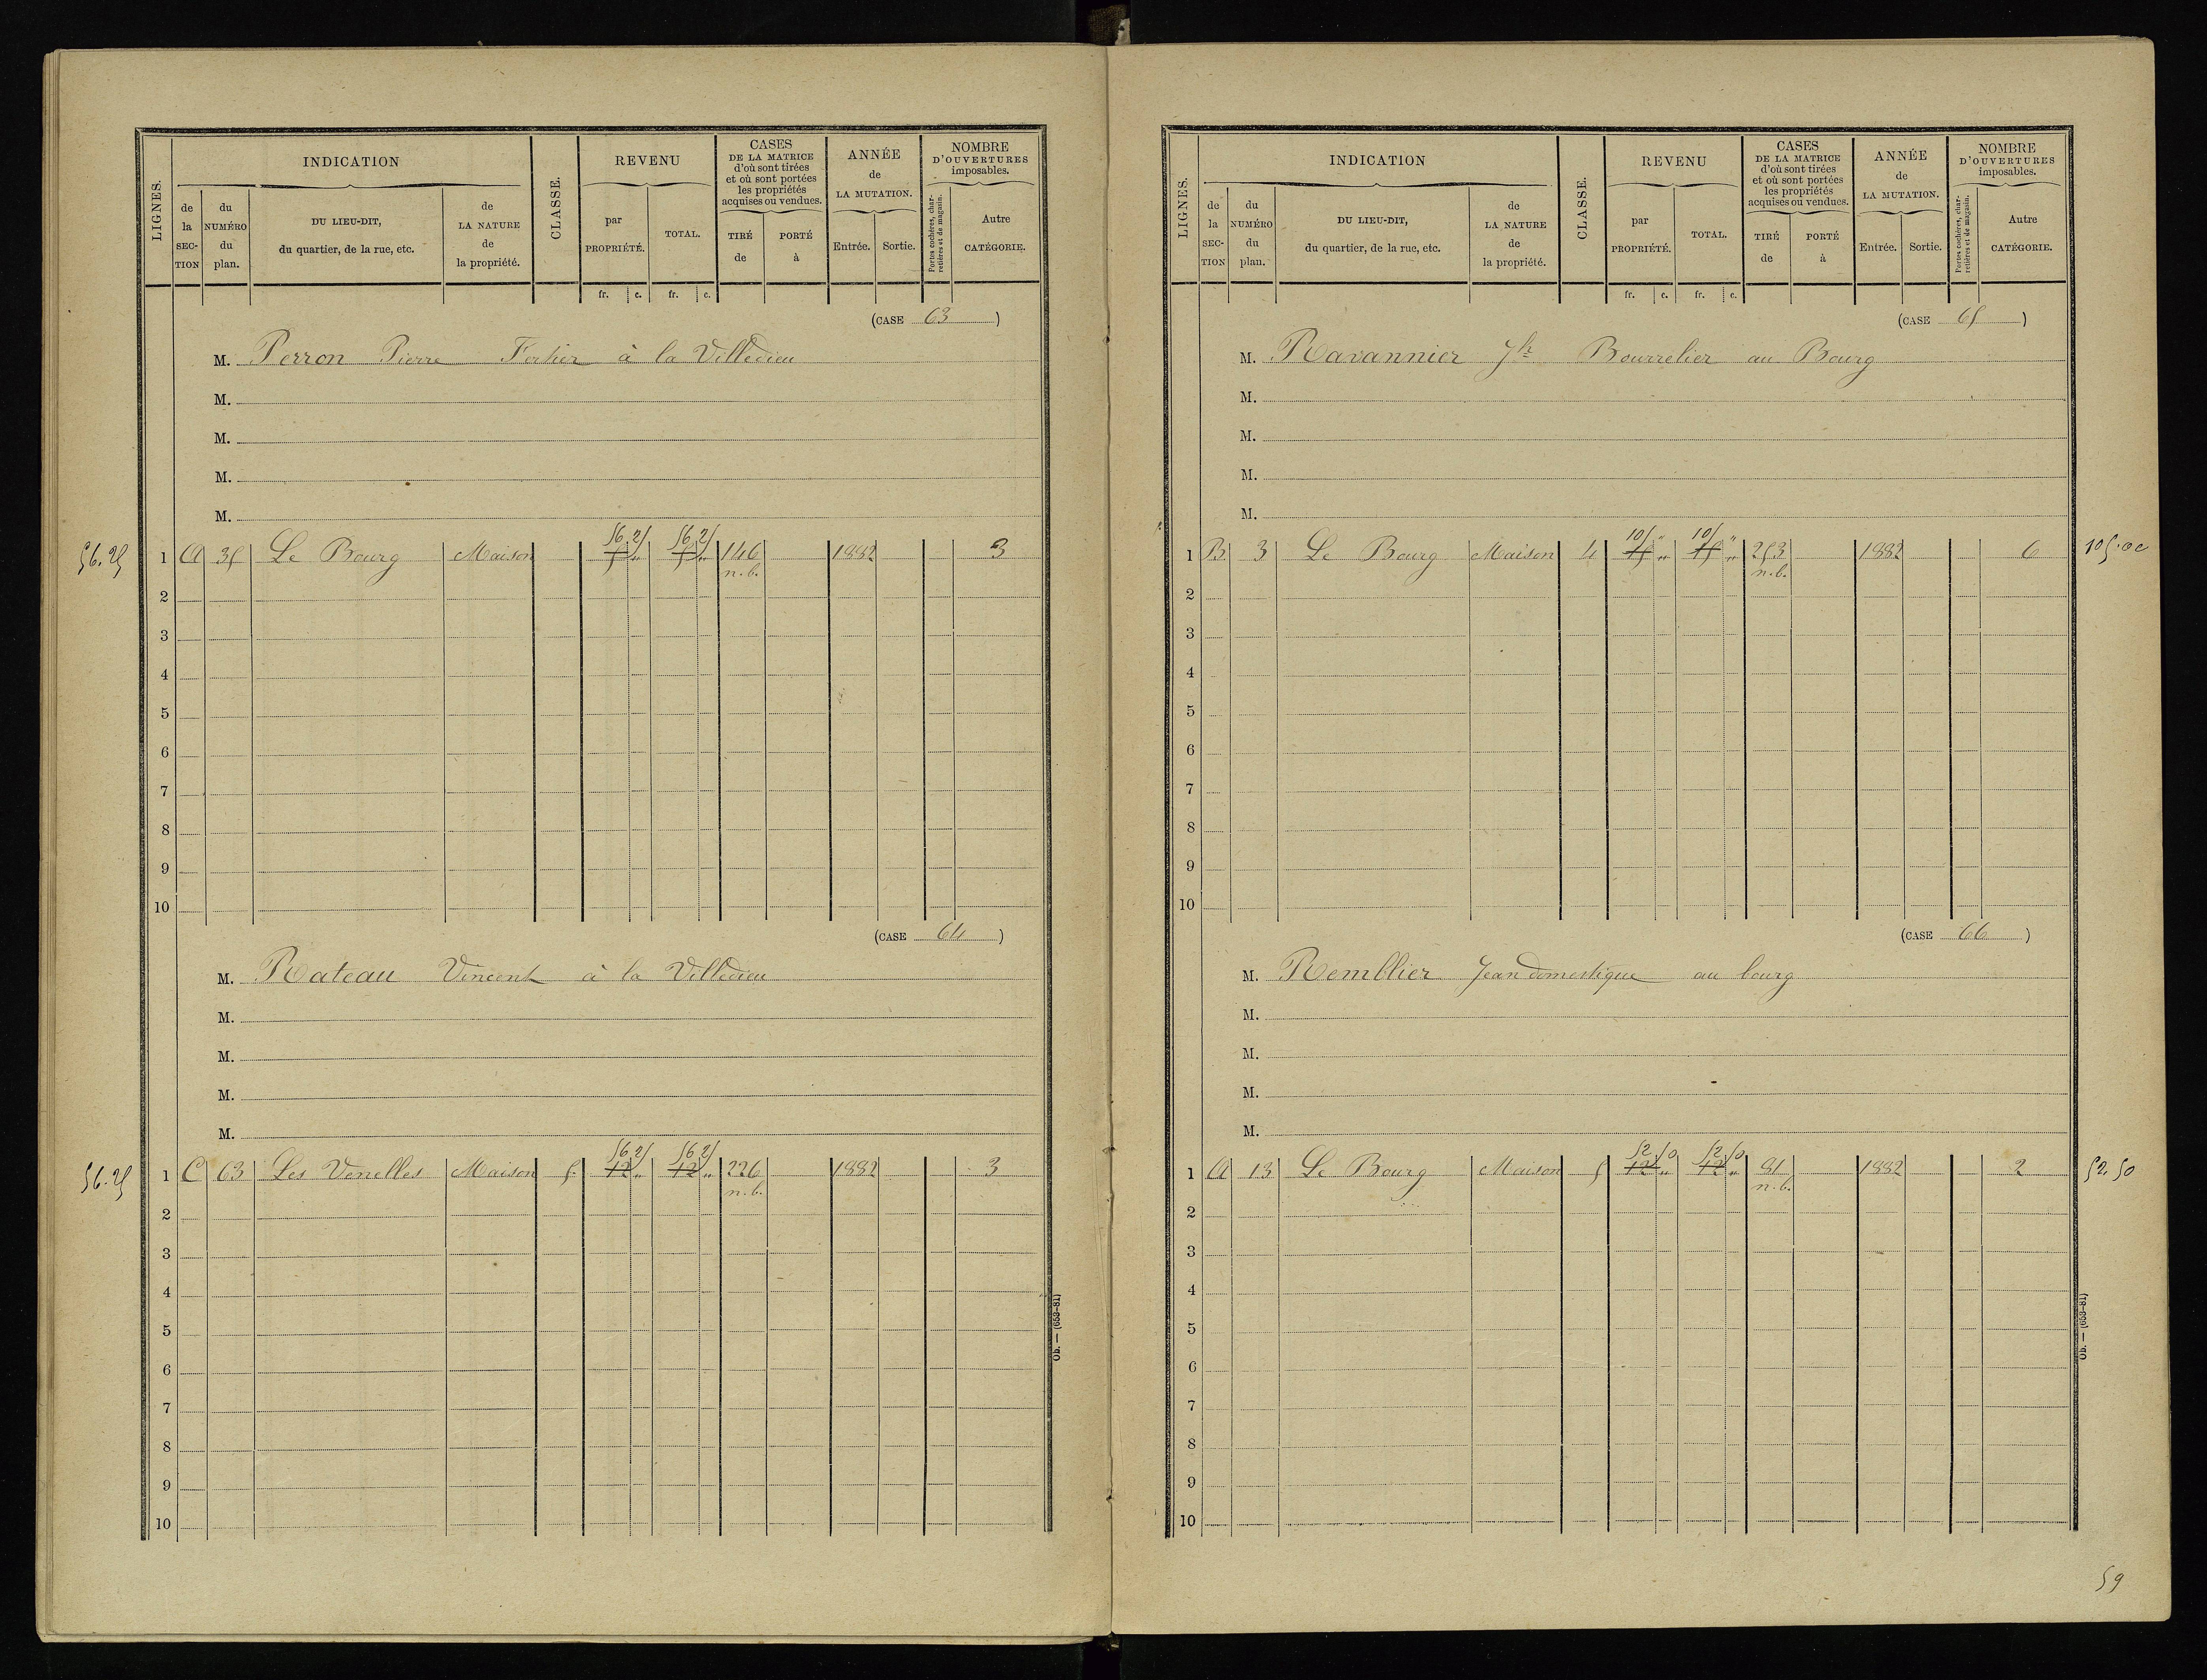 LIGNES.
INDICATION
de la SECTION
du NUMÉRO du plan.
DU LIEU-DIT, du quartier, de la rue, etc.
de LA NATURE de la propriété.
CLASSE.
REVENU
par PROPRIÉTÉ.
TOTAL.
CASES DE LA MATRICE d'où sont tirées et où sont portées les propriétés acquises ou vendues.
TIRÉ de
PORTÉ à
ANNÉE de LA MUTATION.
Entrée.
Sortie.
NOMBRE D'OUVERTURES imposables.
Portes cochères, charretières et de magasin.
Autre CATÉGORIE.
fr. c. fr. c.
(CASE 63)
M. Perron Pierre à la Villedieu
M.
M.
M.
M.
56 25 56 25
56.25 1 A 35 Le Bourg Maison 146 1882 3
n.b.
2
3
4
5
6
7
8
9
10
(CASE 64)
M. Rateau Vincent à la Villedieu
M.
M.
M.
M.
56 25 56 25
56.25 1 C 63 Les Venelles Maison 5 12 „ 12 „ 226 1882 3
n.b.
2
3
4
5
6
7
8
9
10
Ob. — (653-81)
LIGNES.
INDICATION
de la SECTION
du NUMÉRO du plan.
DU LIEU-DIT, du quartier, de la rue, etc.
de LA NATURE de la propriété.
CLASSE.
REVENU
par PROPRIÉTÉ.
TOTAL.
CASES DE LA MATRICE d'où sont tirées et où sont portées les propriétés acquises ou vendues.
TIRÉ de
PORTÉ à
ANNÉE de LA MUTATION.
Entrée.
Sortie.
NOMBRE D'OUVERTURES imposables.
Portes cochères, charretières et de magasin.
Autre CATÉGORIE.
fr. c. fr. c.
(CASE 65)
M. Ravannier Bourrelier au Bourg
M.
M.
M.
M.
105 „ 105 „
1 B 3 Le Bourg Maison 4 253 1882 6 105.00
n.b.
2
3
4
5
6
7
8
9
10
(CASE 66)
M. Remblier Jean domestique au bourg
M.
M.
M.
M.
52 50 52 50
1 A 13 Le Bourg Maison 5 12 „ 12 „ 81 1882 2 52.50
n.b.
2
3
4
5
6
7
8
9
10
Ob. — (653-81)
59